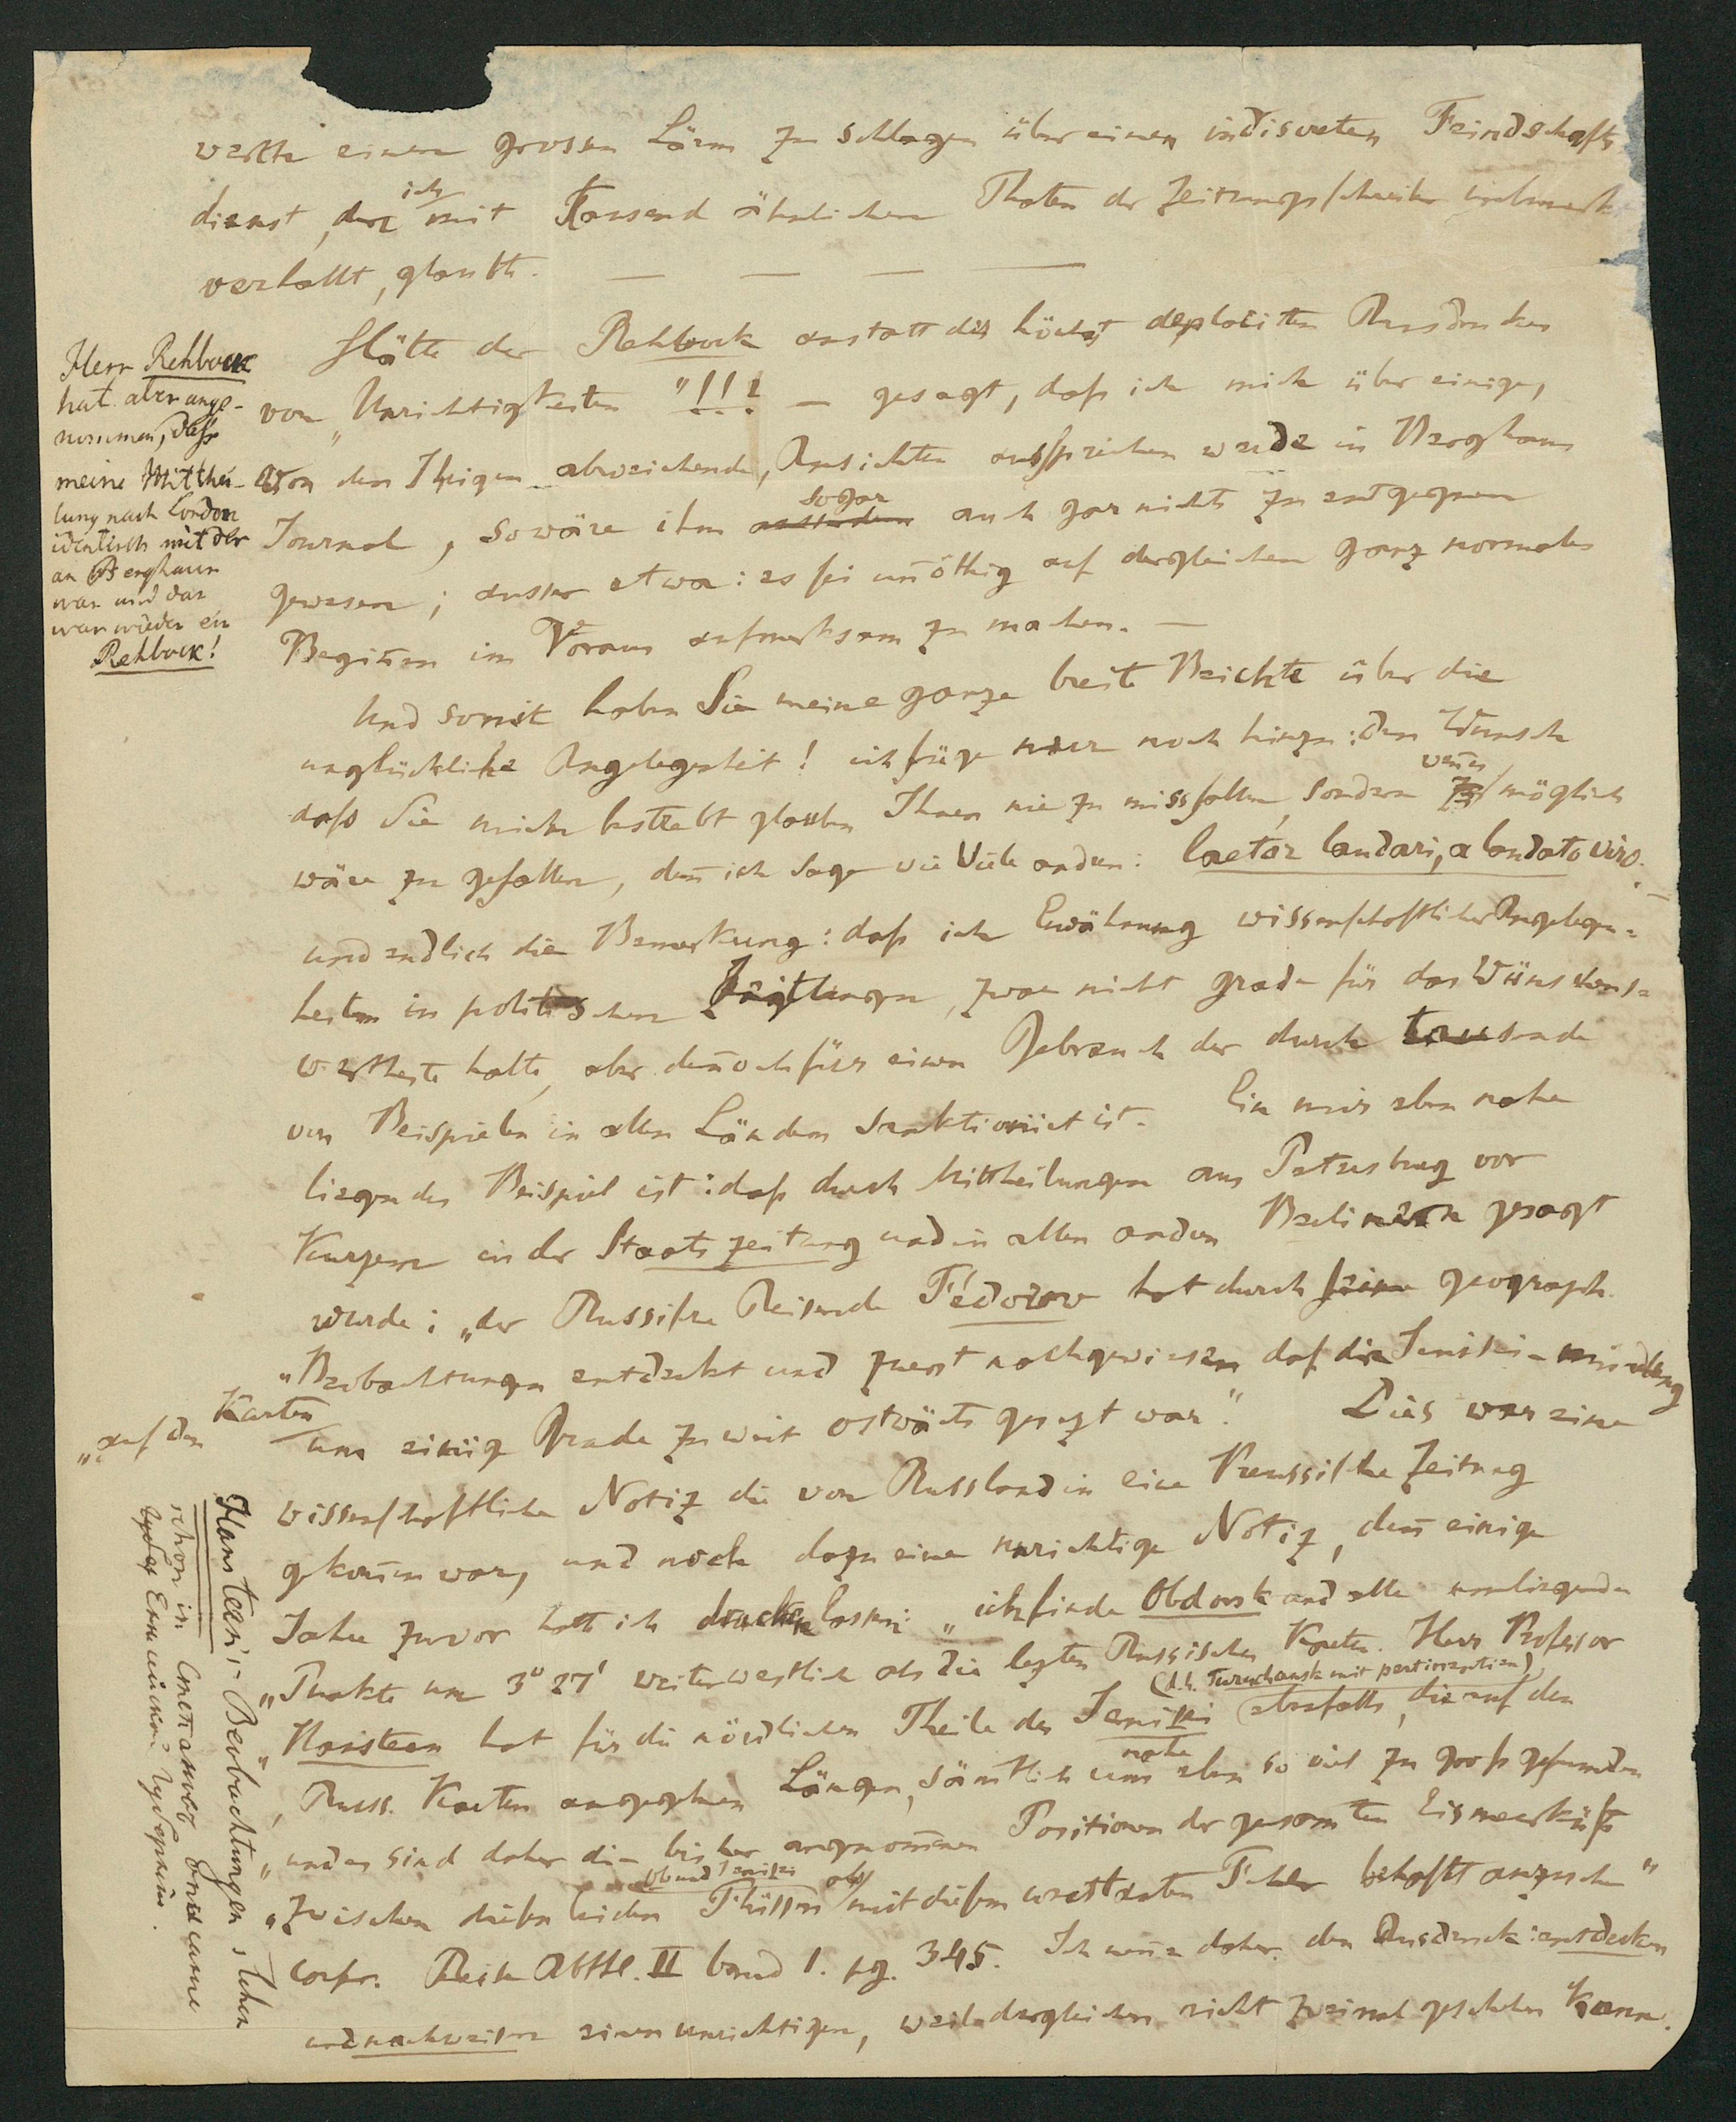 werthe einen grossen Lärm zu schlagen über einen indiscreten Freundschafts
dienst, den ich mit Tausend ähnlichen Thaten der Zeitungsschreiber unbemerkt
verhallt, glaubte. — — — —
Hätte der Rehbock anstatt des höchst deplacirten Ausdruckes
von „Unrichtigkeiten"!!! — gesagt, daß ich mich über einige,
von den Ihrigen abweichende, Ansichten aussprechen werde in Berghaus
Journal, so wäre ihm sogar auch gar nichts zu entgegnen
gewesen; ausser etwa: es sei unnöthig auf dergleichen ganz normales
Beginnen im Voraus aufmerksam zu machen. —
Herr Rehbock
hat aber ange-
nommen, daß
meine Mitthei-
lung nach London
identisch mit der
an Berghaus
war und das
war wieder ein
Rehbock!
Und somit haben Sie meine ganze breite Beichte über die
unglückliche Angelegenheit! ich füge nur noch hinzu: den Wunsch
daß Sie mich bestrebt glauben Ihnen nie zu missfallen, sondern wenn es möglich
wäre zu gefallen, denn ich sage wie Viele andere: laetor laudari, a laudato viro. —
und endlich die Bemerkung: daß ich Erwähnung wissenschaftlicher Angelegen-
heiten in politischen Zeitungen, zwar nicht grade für das Wünschens-
wertheste halte, aber dennoch für einen Gebrauch der durch tausende
von Beispielen in allen Ländern sanktionirt ist. Ein mir eben nahe
liegendes Beispiel ist: daß durch Mittheilungen aus Petersburg vor
Kurzem in der Staatszeitung und in allen andern Berlinern gesagt
wurde: „der Russische Reisende Fédorow hat durch seine geograph.
„Beobachtungen entdeckt und zuerst nachgewiesen daß die Jenisei-mündung
„auf den Karten um einige Grade zu weit ostwärts gesezt war." Dies war eine
wissenschaftliche Notiz die von Russland in eine Preussische Zeitung
gekommen war, und noch dazu eine unrichtige Notiz, denn einige
Jahre zuvor hatte ich drucken lassen: „ich finde Obdorsk und alle umliegenden
„Punkte um 3° 27' weiter westlich als die lezten Russischen Karten. Herr Professor
„Hansteen hat für die nördlichen Theile des Jenisei (d.h. Turuchansk mit pertinentien) ebenfalls, die auf den
„Russ. Karten angegebenen Längen, sämtlich um nahe eben so viel zu groß gefunden
„und es sind daher die bisher angenommenen Positionen der gesammten Eismeerküste
„zwischen diesen beiden Flüssen Ob und Jenisei als mit diesem constanten Fehler behaftet anzusehen"
confr. Reise Abthl. II band 1. pg. 345. Ich nenne daher den Ausdruck: entdecken
und nachweisen einen unrichtigen, weil dergleichen nicht zweimal geschehen kann.
Hansteen's-Beobachtungen stehen
schon in